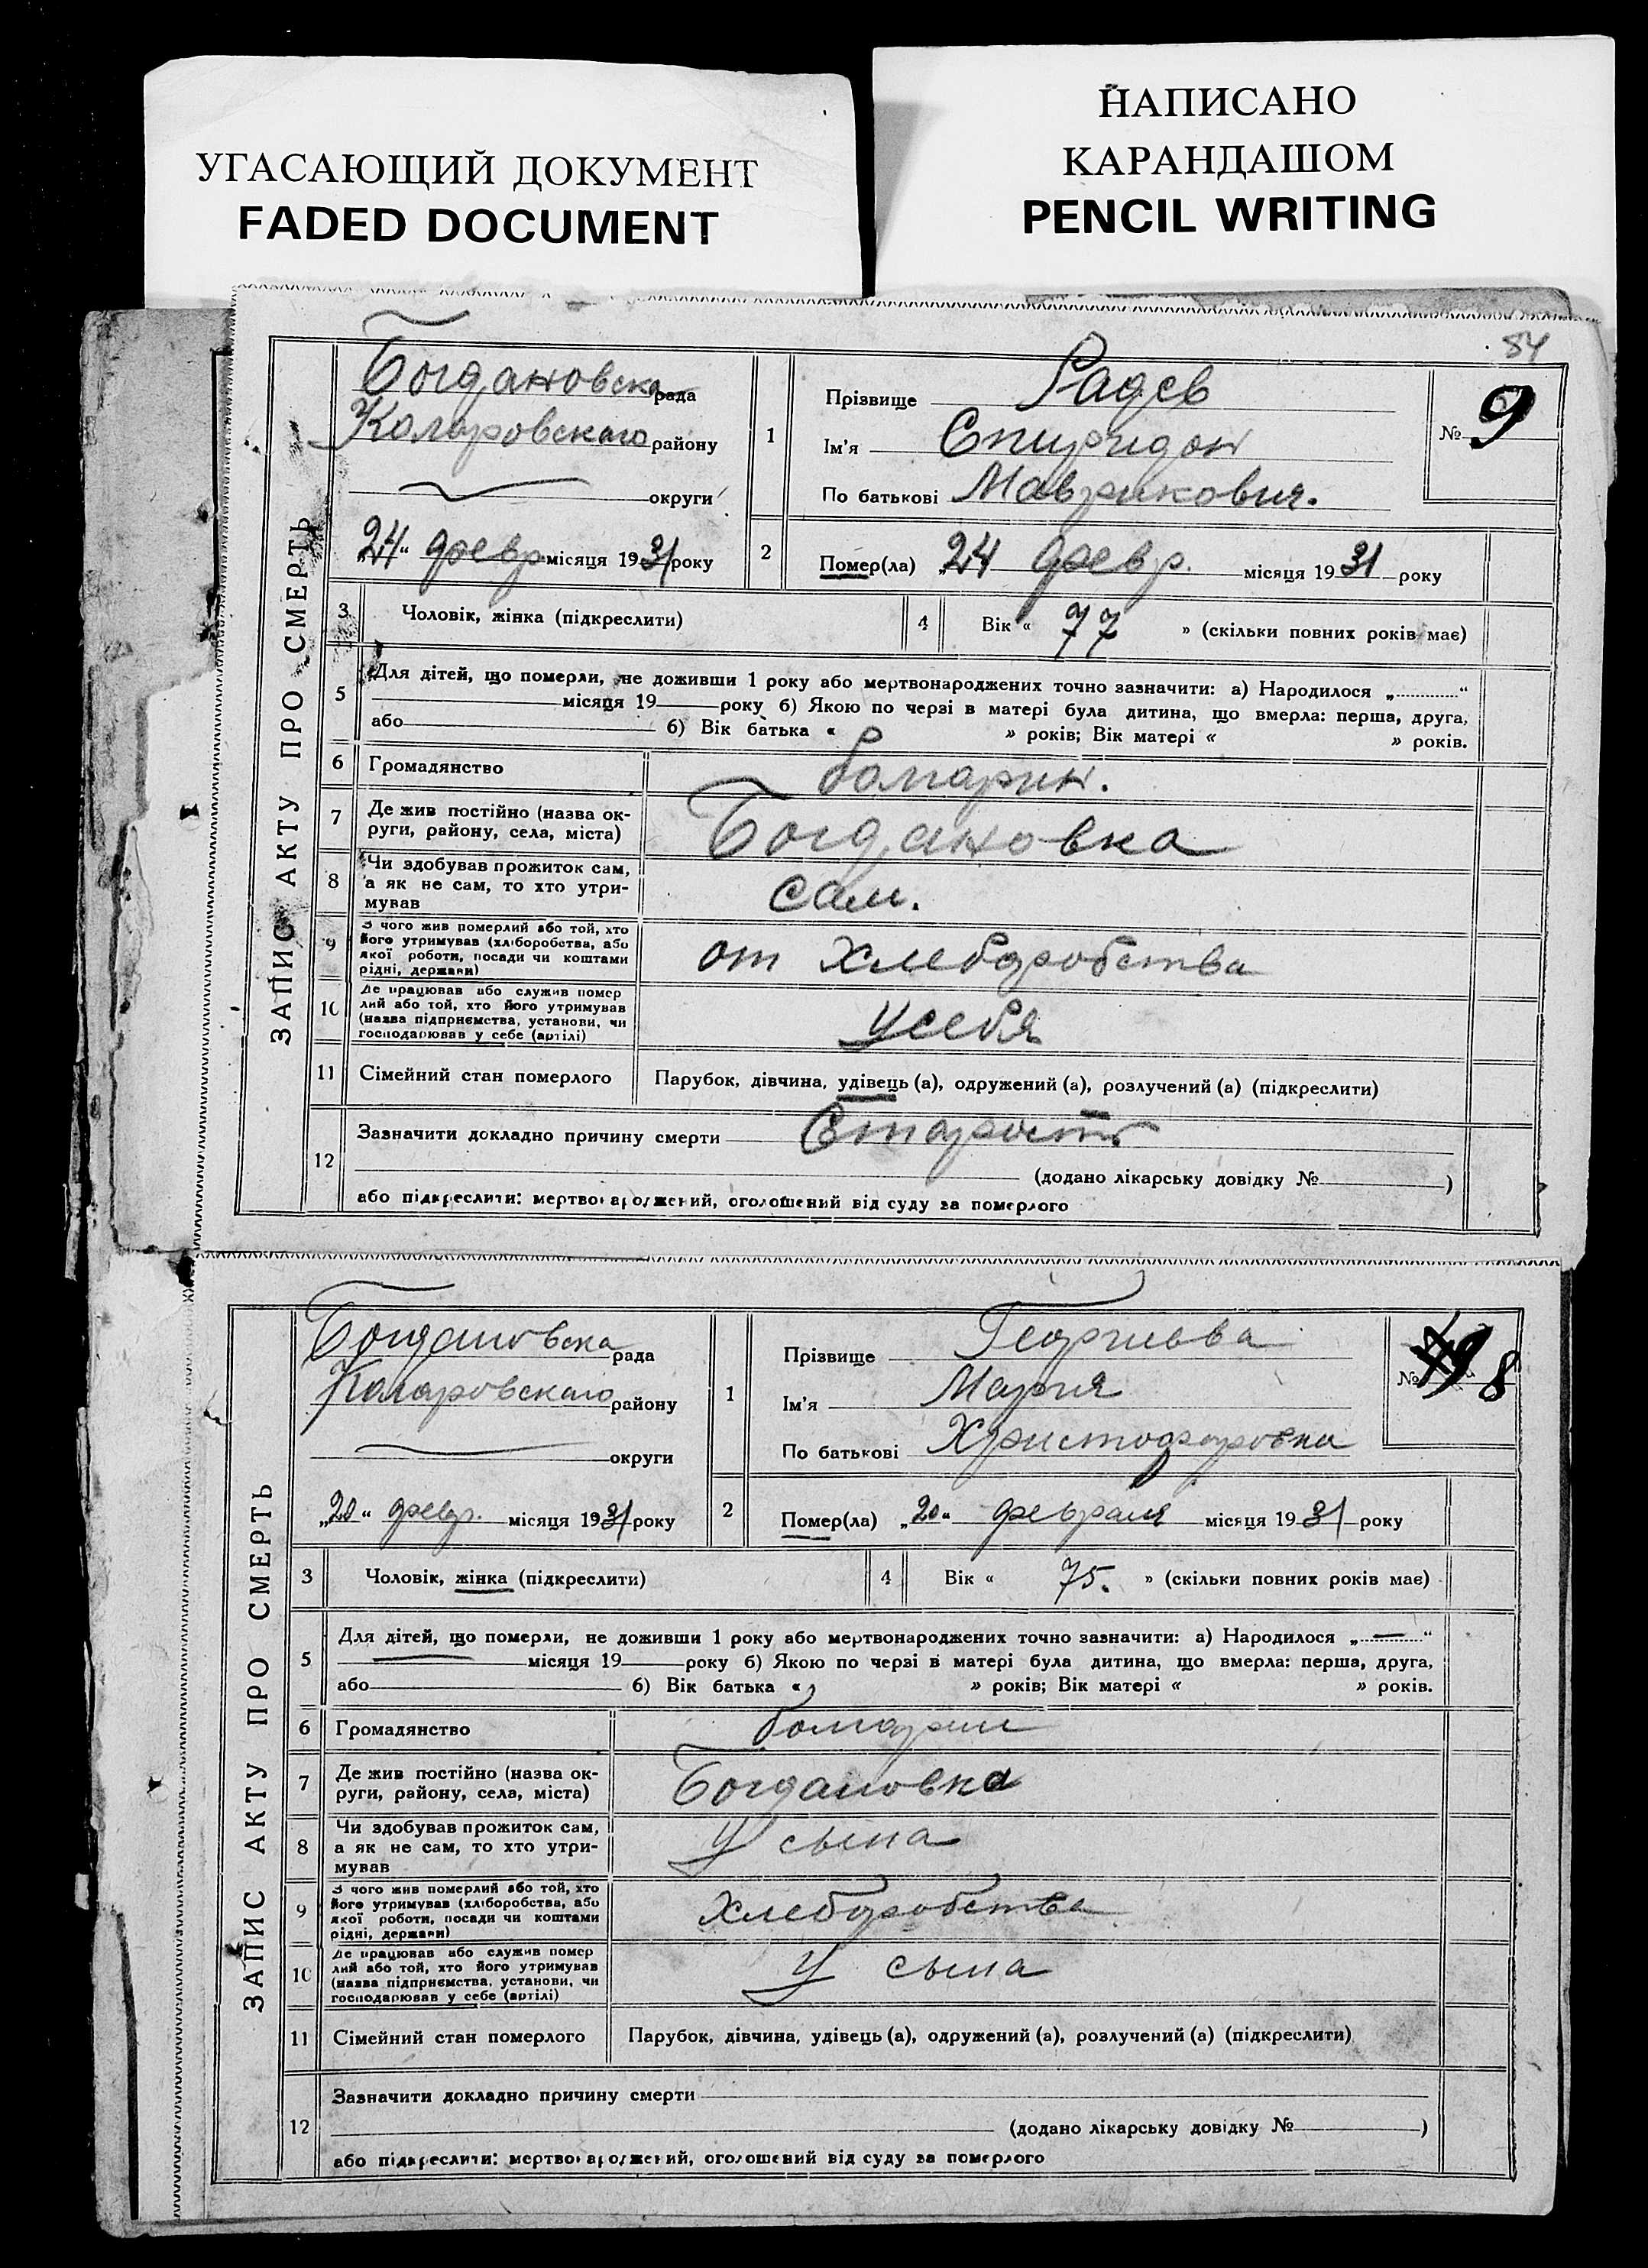 УГАСАЮЩИЙ ДОКУМЕНТ
FADED DOCUMENT
НАПИСАНО
КАРАНДАШОМ
PENCIL WRITING
84
ЗАПИС АКТУ ПРО СМЕРТЬ
Богдановска рада
Коларовскаго району
округи
„24“ февр. місяця 1931 року
1
Прізвище Радев
Ім'я Спиридон
По батькові Маврикович.
№ 9
2
Помер(ла) „24 февр. місяця 1931 року
3
Чоловік, жінка (підкреслити)
4
Вік « 77 » (скільки повних років має)
5
Для дітей, що померли, не доживши 1 року або мертвонароджених точно зазначити: а) Народилося „ “
місяця 19 року б) Якою по черзі в матері була дитина, що вмерла: перша, друга,
або б) Вік батька « » років; Вік матері « » років.
6
Громадянство
болгарин.
7
Де жив постійно (назва ок-
руги, району, села, міста)
Богдановка
8
Чи здобував прожиток сам,
а як не сам, то хто утри-
мував
сам.
9
З чого жив померлий або той, хто
його утримував (хліборобства, або
якої роботи, посади чи коштами
рідні, держави)
от хлеборобства
10
Де працював або служив помер
лий або той, хто його утримував
(назва підприємства, установи, чи
господарював у себе (артілі)
у себя
11
Сімейний стан померлого
Парубок, дівчина, удівець (а), одружений (а), розлучений (а) (підкреслити)
12
Зазначити докладно причину смерти Старость
(додано лікарську довідку № )
або підкреслити: мертвонароджений, оголошений від суду за померлого
ЗАПИС АКТУ ПРО СМЕРТЬ
Богдановска рада
Коларовскаго району
округи
„20“ февр. місяця 1931 року
1
Прізвище Георгиева
Ім'я Мария
По батькові Христофоровна
№ 8
2
Помер(ла) „20“ февраля місяця 1931 року
3
Чоловік, жінка (підкреслити)
4
Вік « 75. » (скільки повних років має)
5
Для дітей, що померли, не доживши 1 року або мертвонароджених точно зазначити: а) Народилося „ — “
місяця 19 року б) Якою по черзі в матері була дитина, що вмерла: перша, друга,
або б) Вік батька « » років; Вік матері « » років.
6
Громадянство
болгарин
7
Де жив постійно (назва ок-
руги, району, села, міста)
Богдановка
8
Чи здобував прожиток сам,
а як не сам, то хто утри-
мував
У сына
9
З чого жив померлий або той, хто
його утримував (хліборобства, або
якої роботи, посади чи коштами
рідні, держави)
Хлеборобства
10
Де працював або служив помер
лий або той, хто його утримував
(назва підприємства, установи, чи
господарював у себе (артілі)
У сына
11
Сімейний стан померлого
Парубок, дівчина, удівець (а), одружений (а), розлучений (а) (підкреслити)
12
Зазначити докладно причину смерти
(додано лікарську довідку № )
або підкреслити: мертвонароджений, оголошений від суду за померлого